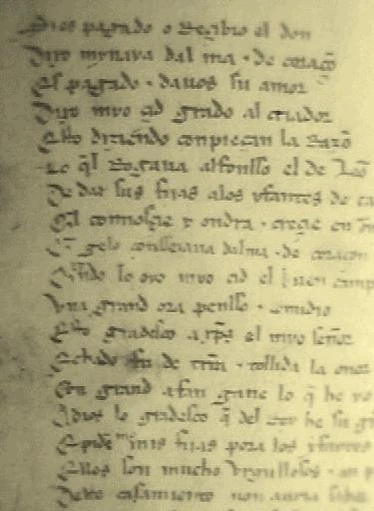 Si es pagado o Reçibio el don
Dixo mynaya dal ma · de coraçõ
Es pagado · dauos su amor
Dixo myo çid grado al criador
Esto diziendo conpieçan la Razõ
Lo q̃l Rogaua alfonsso el de Leõ
De dar sus fijas alos yfantes de ca
Q̃l connosçie y ondra · creçie en
Q̃ gelo conssegaua dalma · de coraçon
Q̃ndo lo oyo myo çid el buen camp
Vna grand ora pensso · comidio
Esto gradesco a xp̃s el myo señor
Echado fu de tr̃ra · tollida la onor
Con grand afan gane lo q̃ he yo
A dios lo gradesco q̃ del Rey he su
E pidẽ me mis fijas pora los yfantes
Ellos son mucho vrgullosos · an p
Deste casamiento non auria sabor